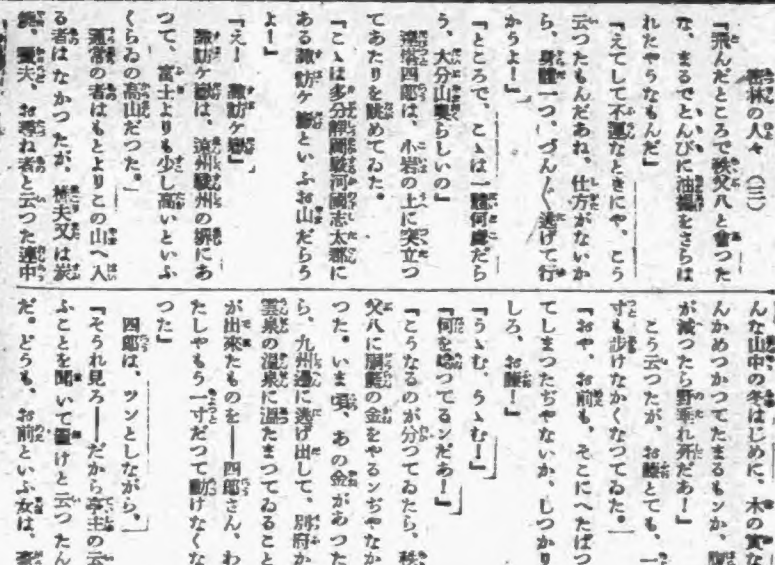 密林の人々 （三）
『飛んだところで秩父八と會つた
な、まるでとんびに油揚をさらは
れたやうなもんだ』
『えてして不運なときにや、こう
云つたもんだあね、仕方がないか
ら、身體一つ、づんづん逃げて行
かうよ！』
『ところで、こゝは一體何處だら
う、大分山奧らしいの』
四郎は、小岩の上に突立つ
てあたりを眺めてゐた。
『こゝは多分靜岡駿河國志太郡に
ある諏訪ケ嶽といふお山だらう
よ！』
『え！ 諏訪ケ嶽』
諏訪ケ嶽は、遠州駿州の堺にあ
つて、富士よりも少し高いといふ
くらゐの高山だつた。
通常の者はもとよりこの山へ入
る者はなかつたが、樵夫又は炭
燒、獵夫、お尋ね者と云つた連中
んな山中の冬はじめに、木の實な
んかめつかつてたまるもンか、腹
が減つたら野垂れ死だあ！』
こう云つたが、お藤とても、一
寸も歩けなくなつてゐた。
『おや、お前も、そこにへたばつ
てしまつたぢやないか、しつかり
しろ、お藤！』
『うゝむ、うゝむ！』
『何を唸つてるンだあ！』
『こうなるのが分つてゐたら、秩
父八に胴藍の金をやるンぢやなか
つた。いま頃、あの金があつた
ら、九州邊に逃げ出して、別府か
雲泉の温泉に温たまつてゐること
が出來たものを――四郎さん、わ
たしやもう一寸だつて動けなくな
つた』
四郎は、ツンとしながら、
『そうれ見ろ――だから亭主の云
ふことを聞いて置けと云つたん
だ。どうも、お前といふ女は、